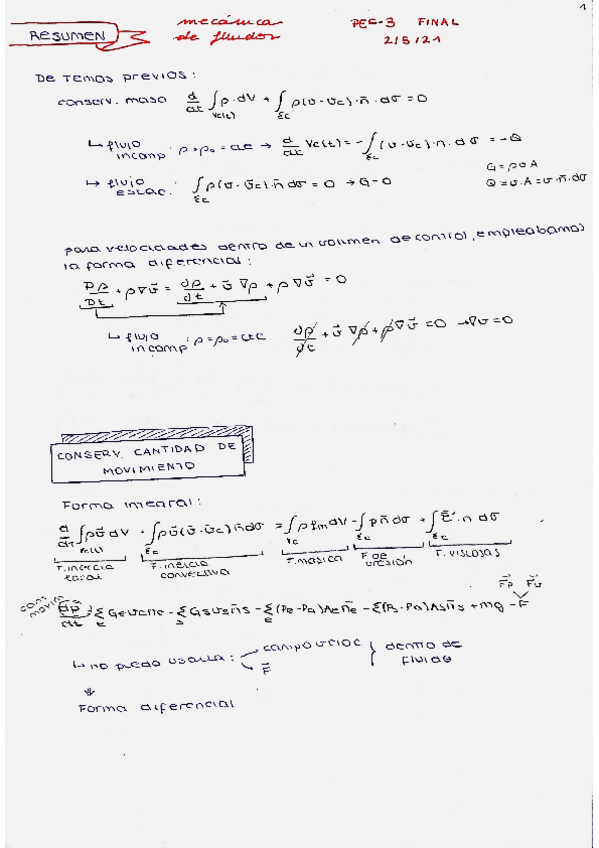 1
RESUMEN
mecánica
de fluidos
PEC-3 FINAL
2/5/21
DE TEMAS PREVIOS:
conserv. masa d/dt ∫Vc(t) ρ·dV + ∫Σc ρ(v-v̄c)·n̄·dσ = 0
↳ flujo incomp: ρ=ρ0=cte → d/dt Vc(t) = -∫Σc (v-v̄c)·n·dσ = -Q
G=ρvA
↳ flujo estac: ∫Σc ρ(v-v̄c)·n̄dσ = 0 → G=0
Q=v·A=v·n̄·dσ
para velocidades dentro de un volumen de control, empleábamos
la forma diferencial:
Dρ/Dt + ρ∇v̄ = dρ/dt + v̄∇ρ + ρ∇v̄ = 0
↳ flujo incomp: ρ=ρ0=cte dρ/dt + v̄∇ρ + ρ∇v̄ = 0 → ∇v=0
CONSERV. CANTIDAD DE
MOVIMIENTO
Forma integral:
d/dt ∫Vc(t) ρv̄ dV + ∫Σc ρv̄(v̄-v̄c)n̄dσ = ∫Vc ρ fm dV - ∫Σc p n̄ dσ + ∫Σc τ̄·n dσ
F. inercia local F. inercia convectiva F. masica F. de presión F. viscosas
F̄p F̄v
cant. movim. dp̄/dt = ΣGevene - ΣGsvsn̄s - Σ(Pe-Pa)Aen̄e - Σ(Ps-Pa)Asn̄s + mg - F̄
↳ no puedo usarla: campo veloc
F̄
dentro de fluido
Forma diferencial